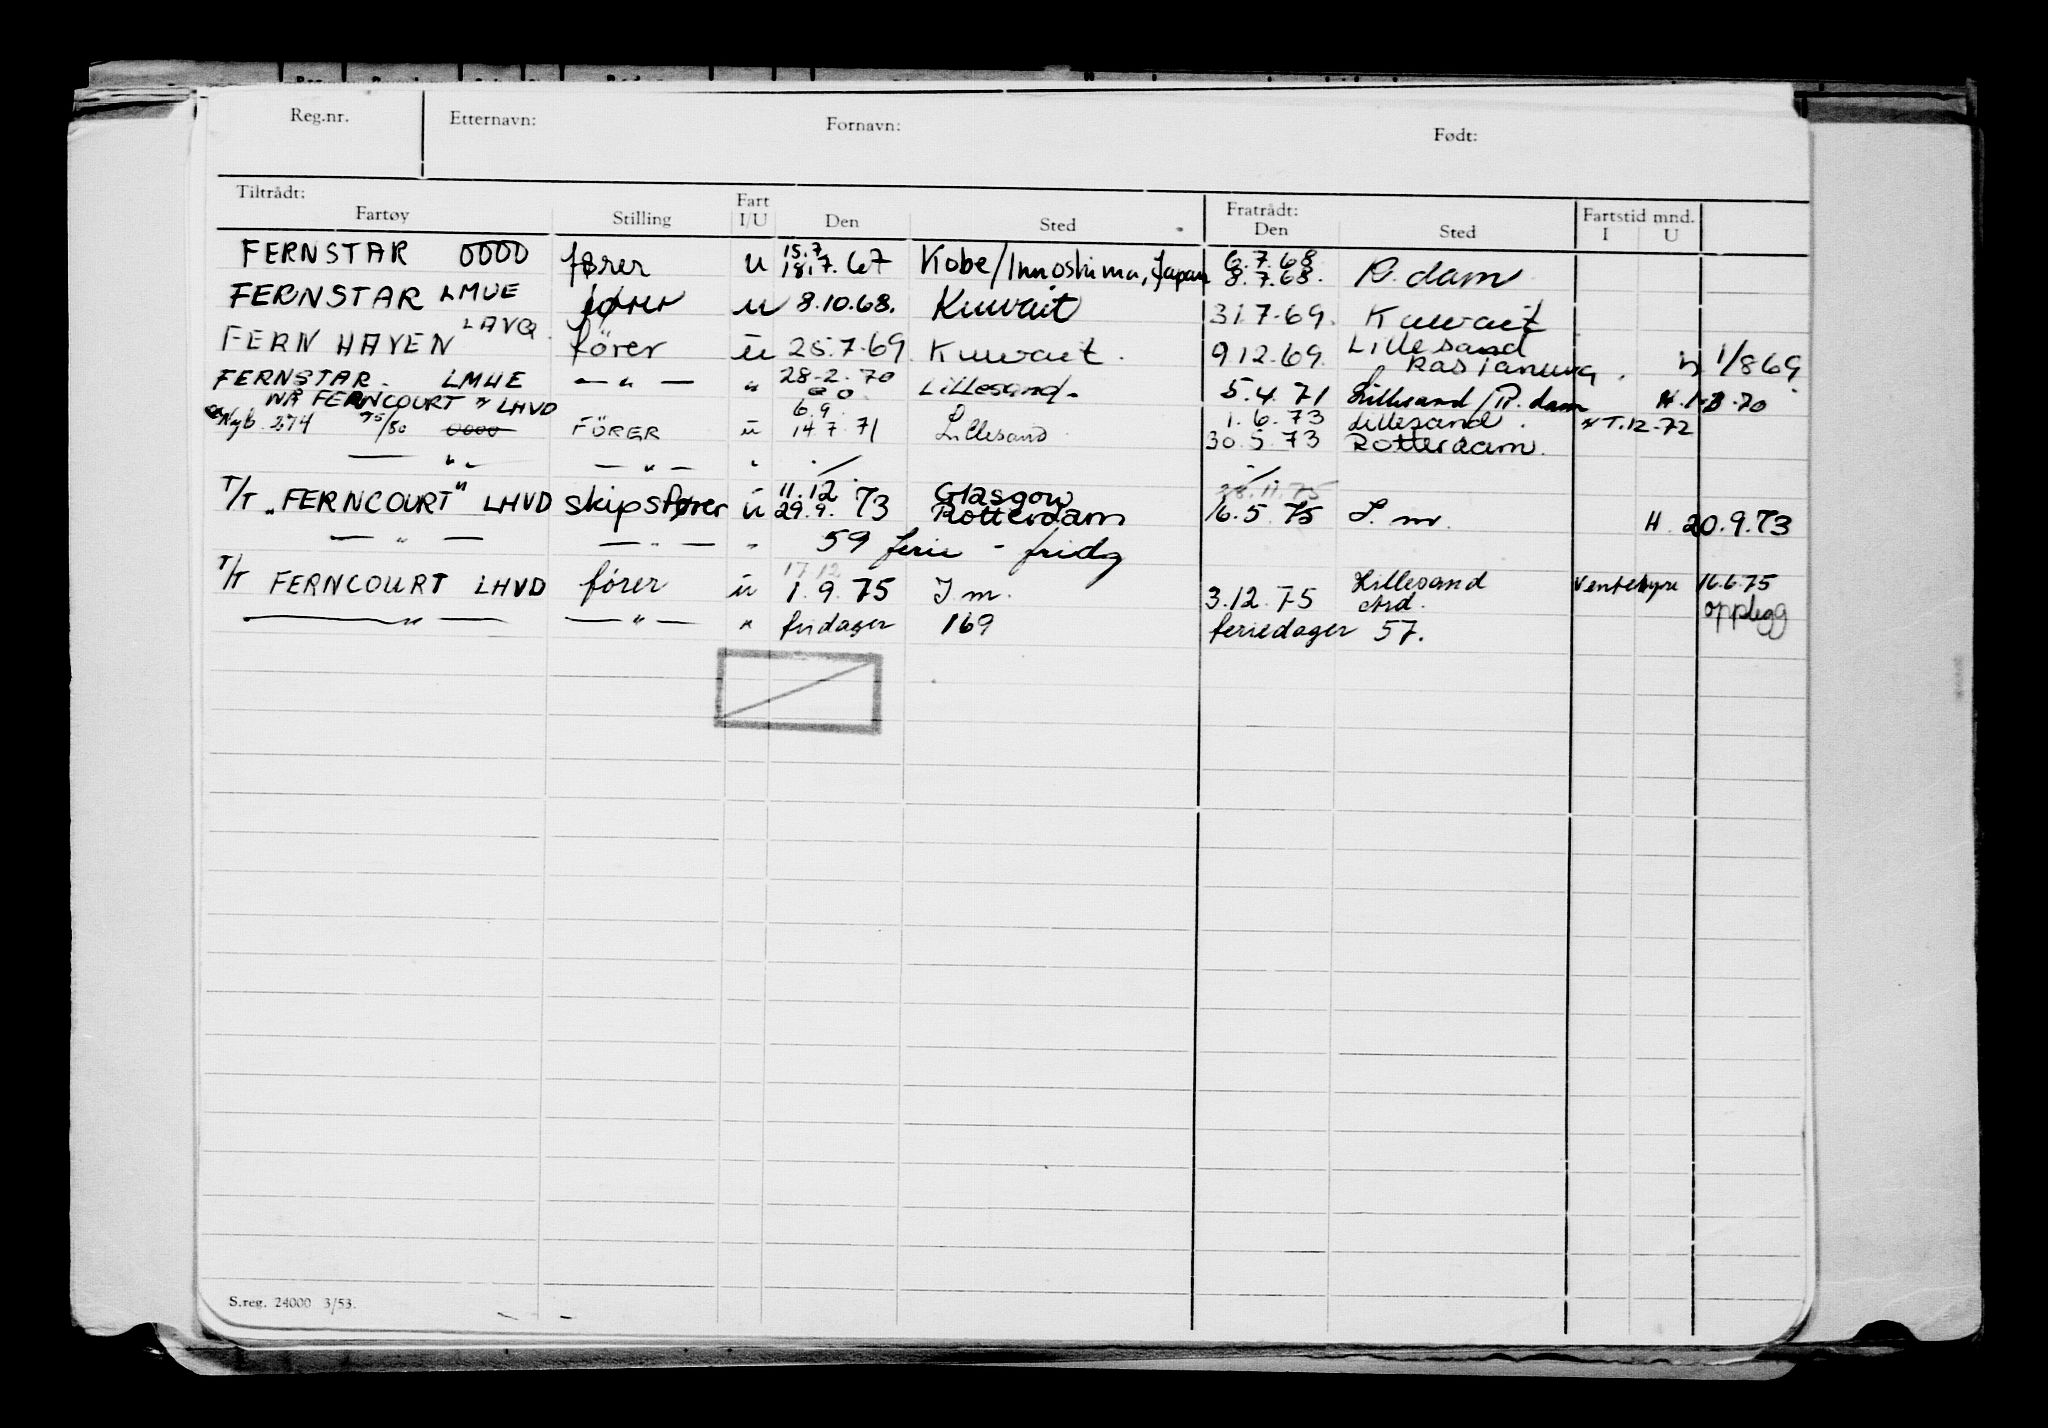 Reg.nr. Etternavn: Fornavn: Født:
Tiltrådt: Fart Fratrådt: Fartstid mnd.
Fartøy Stilling I/U Den Sted Den Sted I U
15.7 6.7.68
FERNSTAR 0000 fører u 18.7.67 Kobe/Innoshima, Japan 8.7.68. R.dam
FERNSTAR LMUE fører u 8.10.68. Kuwait 31.7.69. Kuwait
FERN HAVEN LAVQ fører u 25.7.69 Kuwait. 9.12.69. Lillesand 1/8 69
FERNSTAR. LMUE — " — " 28-2.70 Lillesand. 5.4.71 Lillesand/R.dam
NÅ FERNCOURT LHVD 6.9. 1.6.73 Lillesand. T.12-72
274 75/80 0000 FÖRER u 14.7.71 Lillesand 30.5.73 Rotterdam.
— " — — " — "
11.12 Glasgow 28.11.75
T/T "FERNCOURT" LHVD skipsfører u 29.9.73 Rotterdam 16.5.75 I.m. H. 20.9.73
— " — — " — " 59 ferie - fridg
17.12
T/T FERNCOURT LHVD fører u 1.9.75 I m. 3.12.75 Lillesand Ventehyre 16.6.75
— " — — " — " fridager 169 feriedager 57. opplegg
S.reg. 24000 3/53.